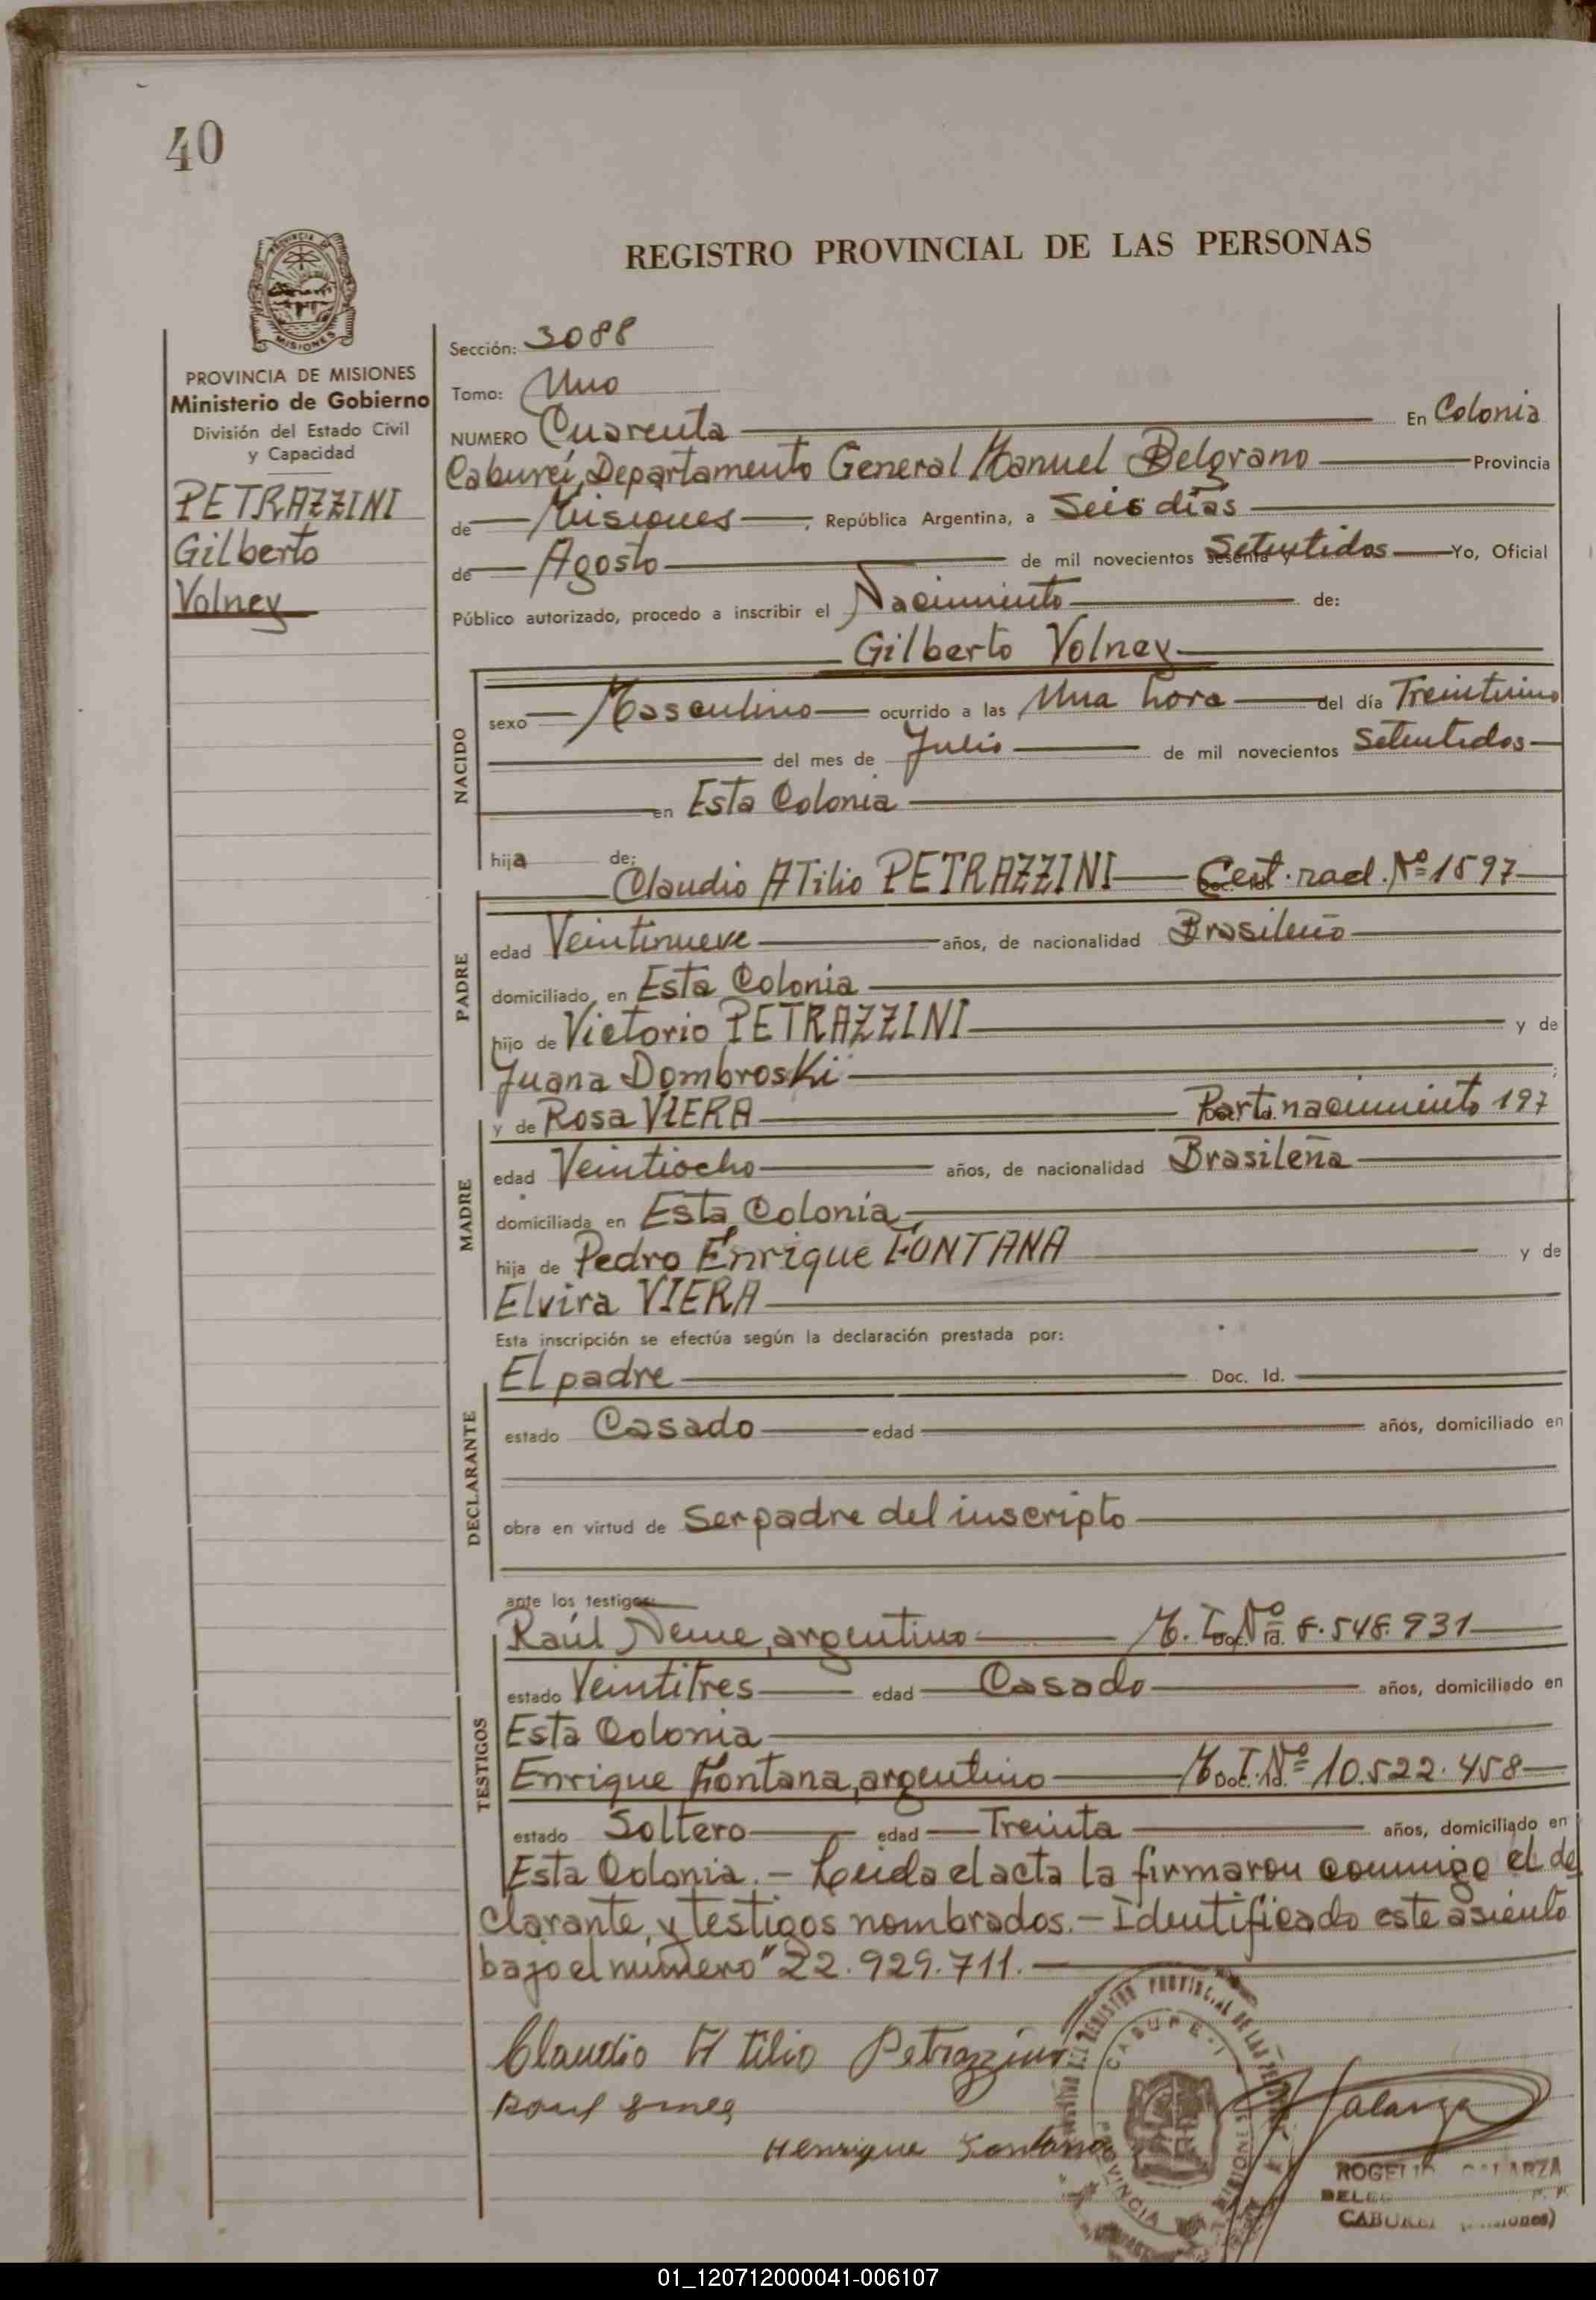 40
REGISTRO PROVINCIAL DE LAS PERSONAS
PROVINCIA DE MISIONES
Ministerio de Gobierno
División del Estado Civil
y Capacidad
PETRAZZINI
Gilberto
Volney
Sección: 3088
Tomo: Uno
NUMERO Cuarenta En Colonia
Caburei, Departamento General Manuel Belgrano Provincia
de Misiones, República Argentina, a Seis días
de Agosto de mil novecientos sesenta y Setentidos Yo, Oficial
Público autorizado, procedo a inscribir el Nacimiento de:
Gilberto Volney
NACIDO
sexo Masculino ocurrido a las Una hora del día Treintiuno
del mes de Julio de mil novecientos Setentidos
en Esta Colonia
hija de:
PADRE
Claudio ATilio PETRAZZINI Cert. rad. Nº 1897
edad Veintinueve años, de nacionalidad Brasileño
domiciliado en Esta Colonia
hijo de Victorio PETRAZZINI y de
Juana Dombroski
MADRE
y de Rosa VIERA Part. nacimiento 197
edad Veintiocho años, de nacionalidad Brasileña
domiciliada en Esta Colonia,
hija de Pedro Enrique FONTANA y de
Elvira VIERA
Esta inscripción se efectúa según la declaración prestada por:
DECLARANTE
El padre Doc. Id.
estado Casado edad años, domiciliado en
obra en virtud de Ser padre del inscripto
ante los testigos:
TESTIGOS
Raúl Neme, argentino M. I. Nº 8.548.931
estado Veintitres edad Casado años, domiciliado en
Esta Colonia
Enrique Fontana, argentino M. I. Nº 10.522.458
estado Soltero edad Treinta años, domiciliado en
Esta Colonia. - Leida el acta la firmaron conmigo el de
clarante, y testigos nombrados. - Identificado este asiento
bajo el número "22.929.711.
Claudio Atilio Petrazzini
Henrique Fontana
Galarza
ROGELIO GALARZA
CABUREI (Misiones)
01_120712000041-006107